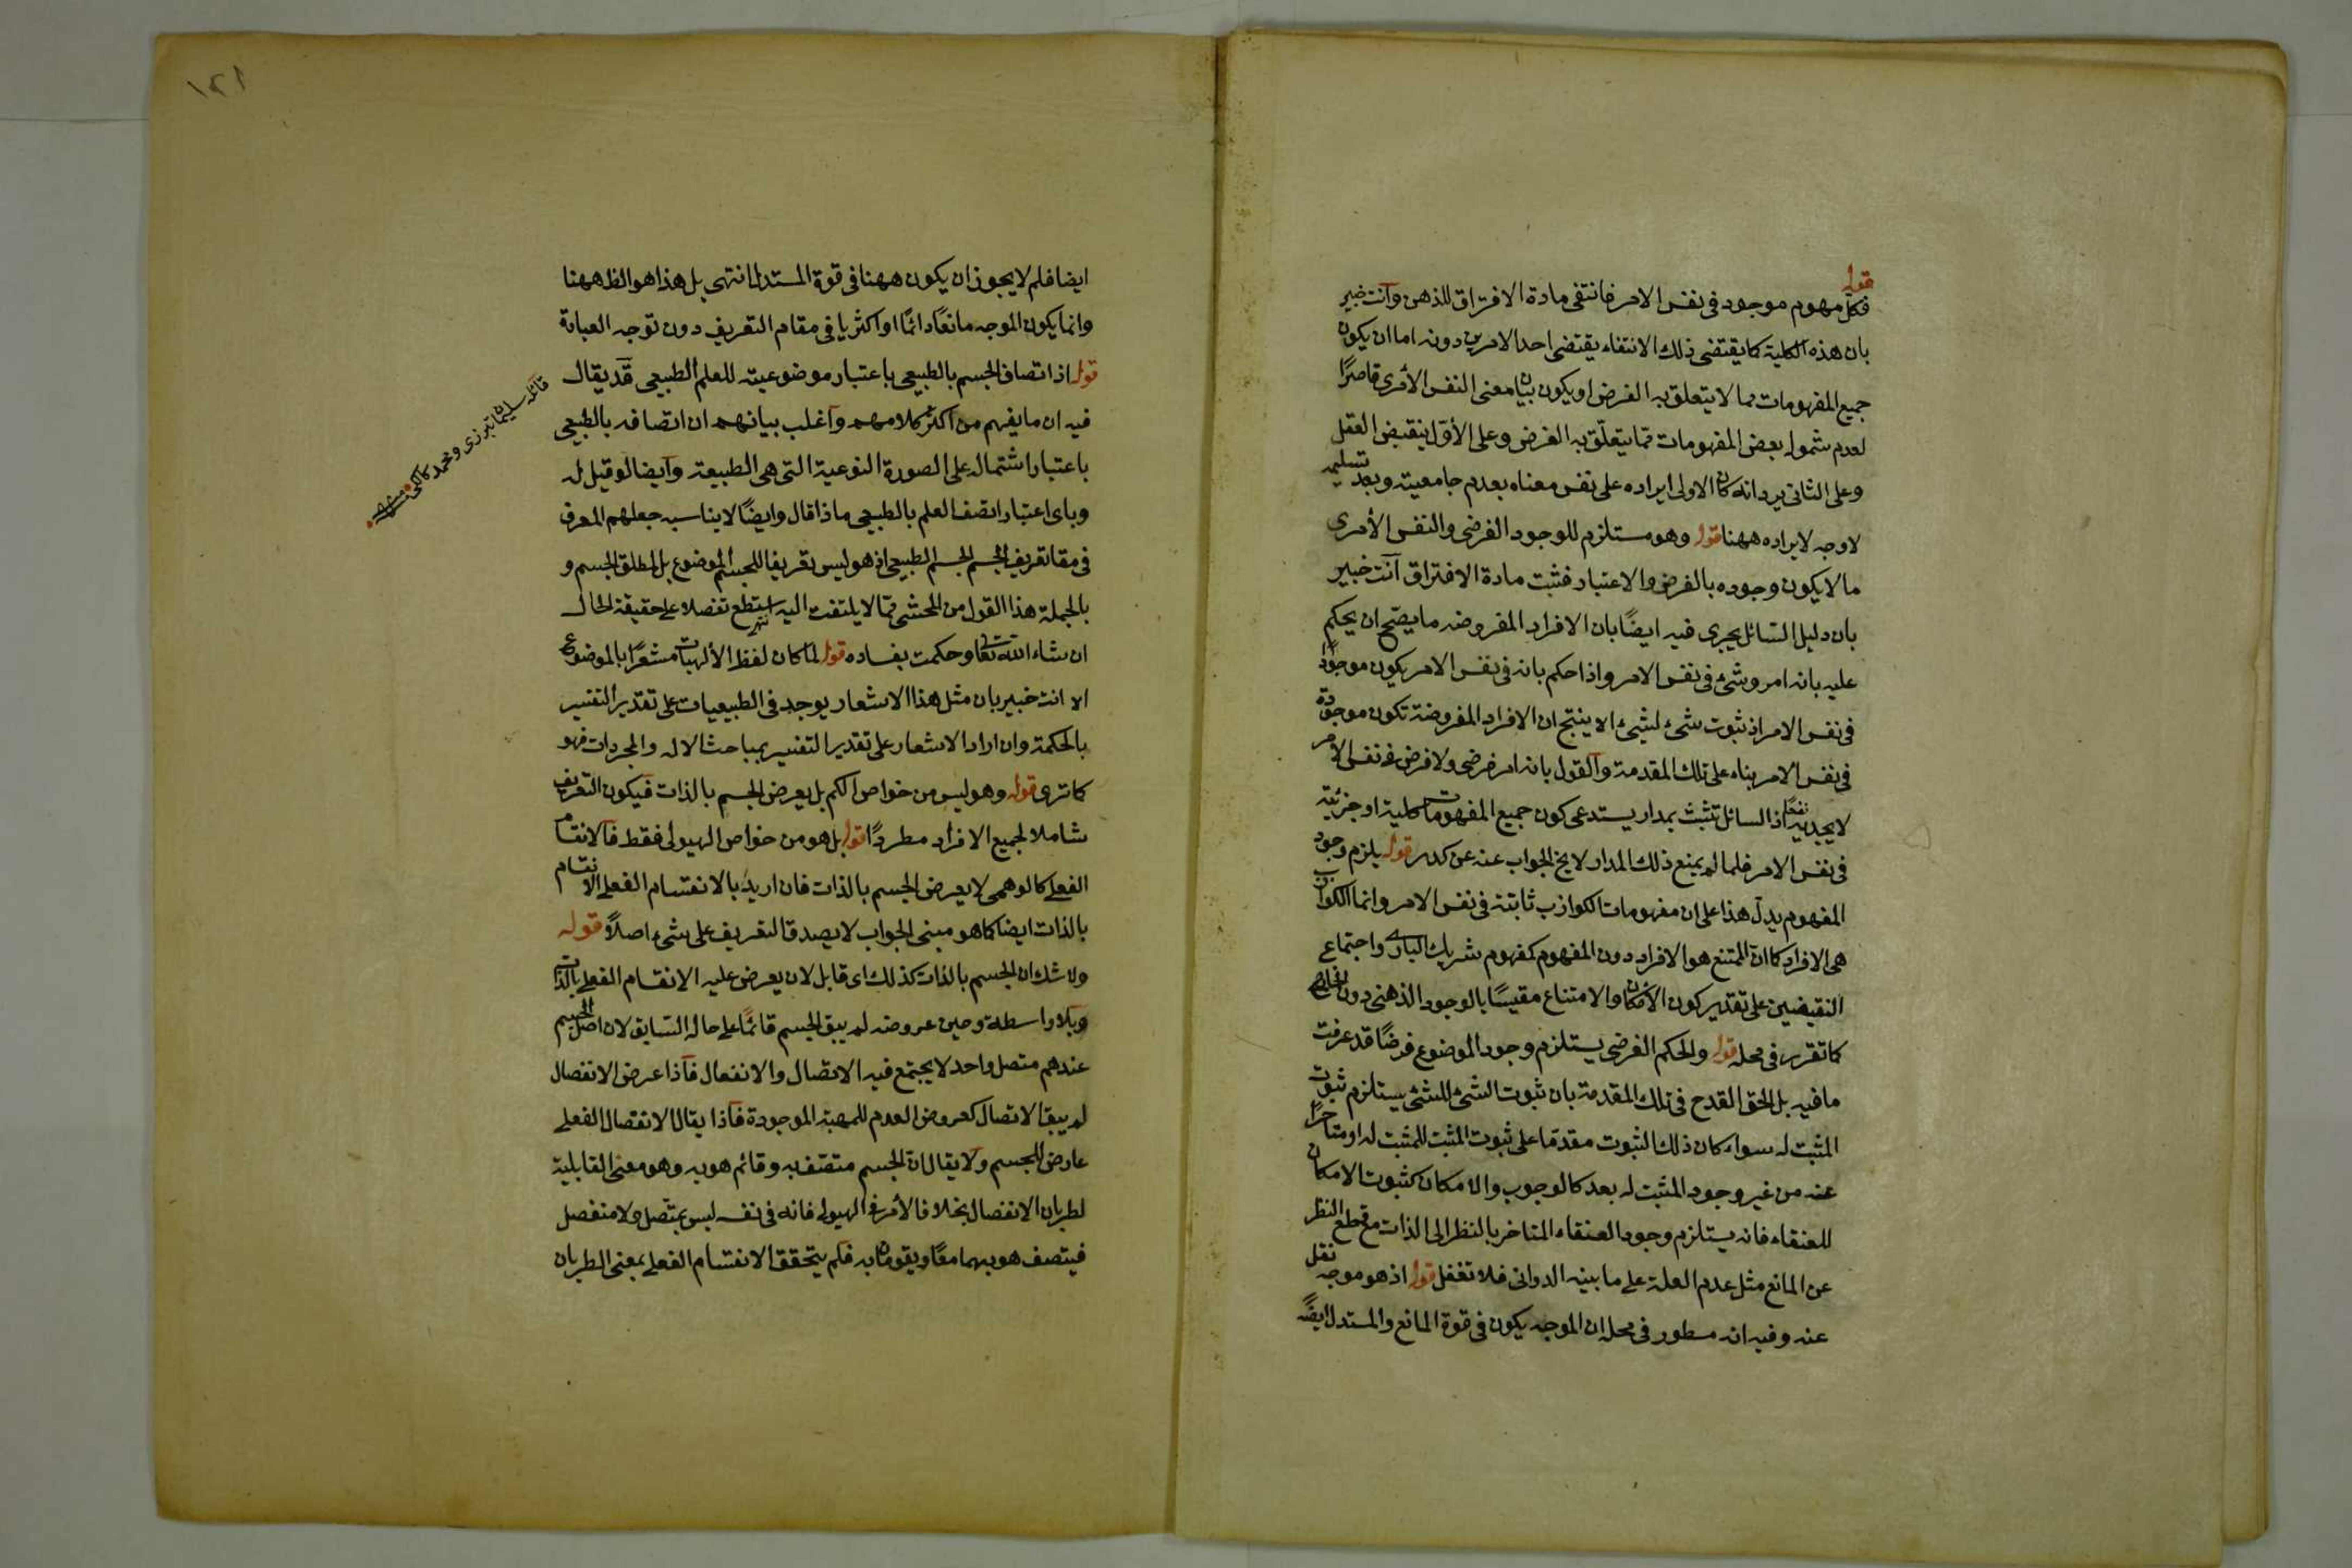 قوله
فكل مفهوم موجود في نفس الامر فانتفى مادة الافتراق للذهن وانت خبير
بان هذه الكلية كما يقتضى ذلك الانتفاء يقتضى احد الامرين دونه اما ان يكون
جميع المفهومات مما لا يتعلق به الفرض او يكون بيان معنى النفس الأمرى قاصرًا
لعدم شموله بعض المفهومات ممّا يتعلّق به الفرض وعلى الأوّل ينقبض العقل
وعلى الثانى يرد انه كان الاولى ايراده على نفس معناه بعدم جامعيته وبعد تسليمه
لا وجه لايراده ههنا قوله وهو مستلزم للوجود الفرضى والنفس الأمرى
ما لا يكون وجوده بالفرض والاعتبار فثبت مادة الافتراق آنت خبير
بان دليل السّائل يجرى فيه ايضًا بان الافراد المفروضه ما يصّح ان يحكم
عليه بانه امر وشئ في نفس الامر واذا حكم بانه في نفس الامر يكون موجودًا
في نفس الامر اذ ثبوت شئ لشئ الا ينتج ان الافراد المفروضة تكون موجودة
في نفس الامر بناء على تلك المقدمة وآلقول بانه امر فرضى ولا فرض في نفس الأمر
لا يجديه نفعًا اذ السائل تثبث بمدار يستدعى كون جميع المفهومات كلية او جزئية
في نفس الامر فلما لم يمنع ذلك المدار لا يخ الجواب عنه عن كدر قوله يلزم وجود
المفهوم يدلّ هذا على ان مفهومات الكواذب ثابتة في نفس الامر وانما الكواذب
هى الافراد كما انّ الممتنع هو الافراد دون المفهوم كمفهوم شريك البارى واجتماع
النقيضين على تقدير كون الأمكان والامتناع مقيسًا بالوجود الذهنى دون الخارجى
كما تقرر في محله قوله والحكم الفرضى يستلزم وجود الموضوع فرضًا قد عرفت
ما فيه بل الحق القدح في تلك المقدمة بان ثبوت الشئ للشئ يستلزم ثبوت
المثبت له سواء كان ذلك الثبوت مقدمًا على ثبوت المثبت للمثبت له او متاخرًا
عنه من غير وجود المثبت له بعد كالوجوب والامكان كثبوت الامكان
للعنقاء فانه يستلزم وجود العنقاء المتاخر بالنظر الى الذات مع قطع النظر
عن المانع مثل عدم العلة على ما بينه الدوانى فلا تغفل قوله اذ هو موجه نقل
عنه وفيه انه مسطور في محله ان الموجه يكون في قوة المانع والمستدل ايضًا
١٢١
ايضا فلم لا يجوز ان يكون ههنا في قوة المستدل انتهى بل هذا هو الظ ههنا
وانما يكون الموجه مانعًا دائمًا او اكثريا في مقام التعريف دون توجه العبارة
قوله اذ اتصاف الجسم بالطبيعى باعتبار موضوعيته للعلم الطبيعى قد يقال
فيه ان ما يفهم من اكثر كلامهم وآغلب بيانهم ان اتصافه بالطبيعى
باعتبار اشتماله على الصورة النوعية التى هى الطبيعة وآيضا لو قيل له
وباى اعتبار اتصف العلم بالطبيعى ماذا قال وايضًا لا يناسبه جعلهم المعرف
في مقام تعريف الجسم الجسم الطبيعى اذ هو ليس تعريفا للجسم الموضوع بل لمطلق الجسم و
بالجملة هذا القول من المحشى ممّا لا يلتفت اليه استطع تفصلا على حقيقة الحال
ان شاء الله تعا وحكمت بفساده قوله لما كان لفظ الألهيات مشعرًا بالموضوع
الا انت خبير بان مثل هذا الاشعار يوجد في الطبيعيات على تقدير التفسير
بالحكمة وان اراد الاشعار على تقدير التفسير بمباحث الاله والمجردات فهو
كما ترى قوله وهو ليس من خواص الكم بل يعرض الجسم بالذات فيكون التعريف
شاملا لجميع الافراد مطردًا قوله بل هو من خواص الهيولى فقط فآلانقسام
الفعلى كالوهمى لا يعرض الجسم بالذات فان اريد بالانقسام الفعلى الانقسام
بالذات ايضا كما هو مبنى الجواب لا يصدق التعريف على شئ اصلًا قوله
ولا شك ان الجسم بالذات كذلك اى قابل لان يعرض عليه الانقسام الفعلى بالذات
وبلا واسطة وحين عروضه لم يبق الجسم قائمًا على حاله السّابق لان اصل الجسم
عندهم متصل واحد لا يجتمع فيه الاتصال والانفصال فآذا عرض الانفصال
لم يبق الاتصال كعروض العدم للمهية الموجودة فآذا يقال الانفصال الفعلى
عارض للجسم ولا يقال ان الجسم متصّف به وقائم هو به وهو معنى القابلية
لطريان الانفصال بخلاف الأمر في الهيولى فانه في نفسه ليس بمتّصل ولا منفصل
فيتصف هو بهما معًا ويقومان به فلم يتحقق الانقسام الفعلى بمعنى الطريان
قائله سليمان تبرزى ومحمد كاكى